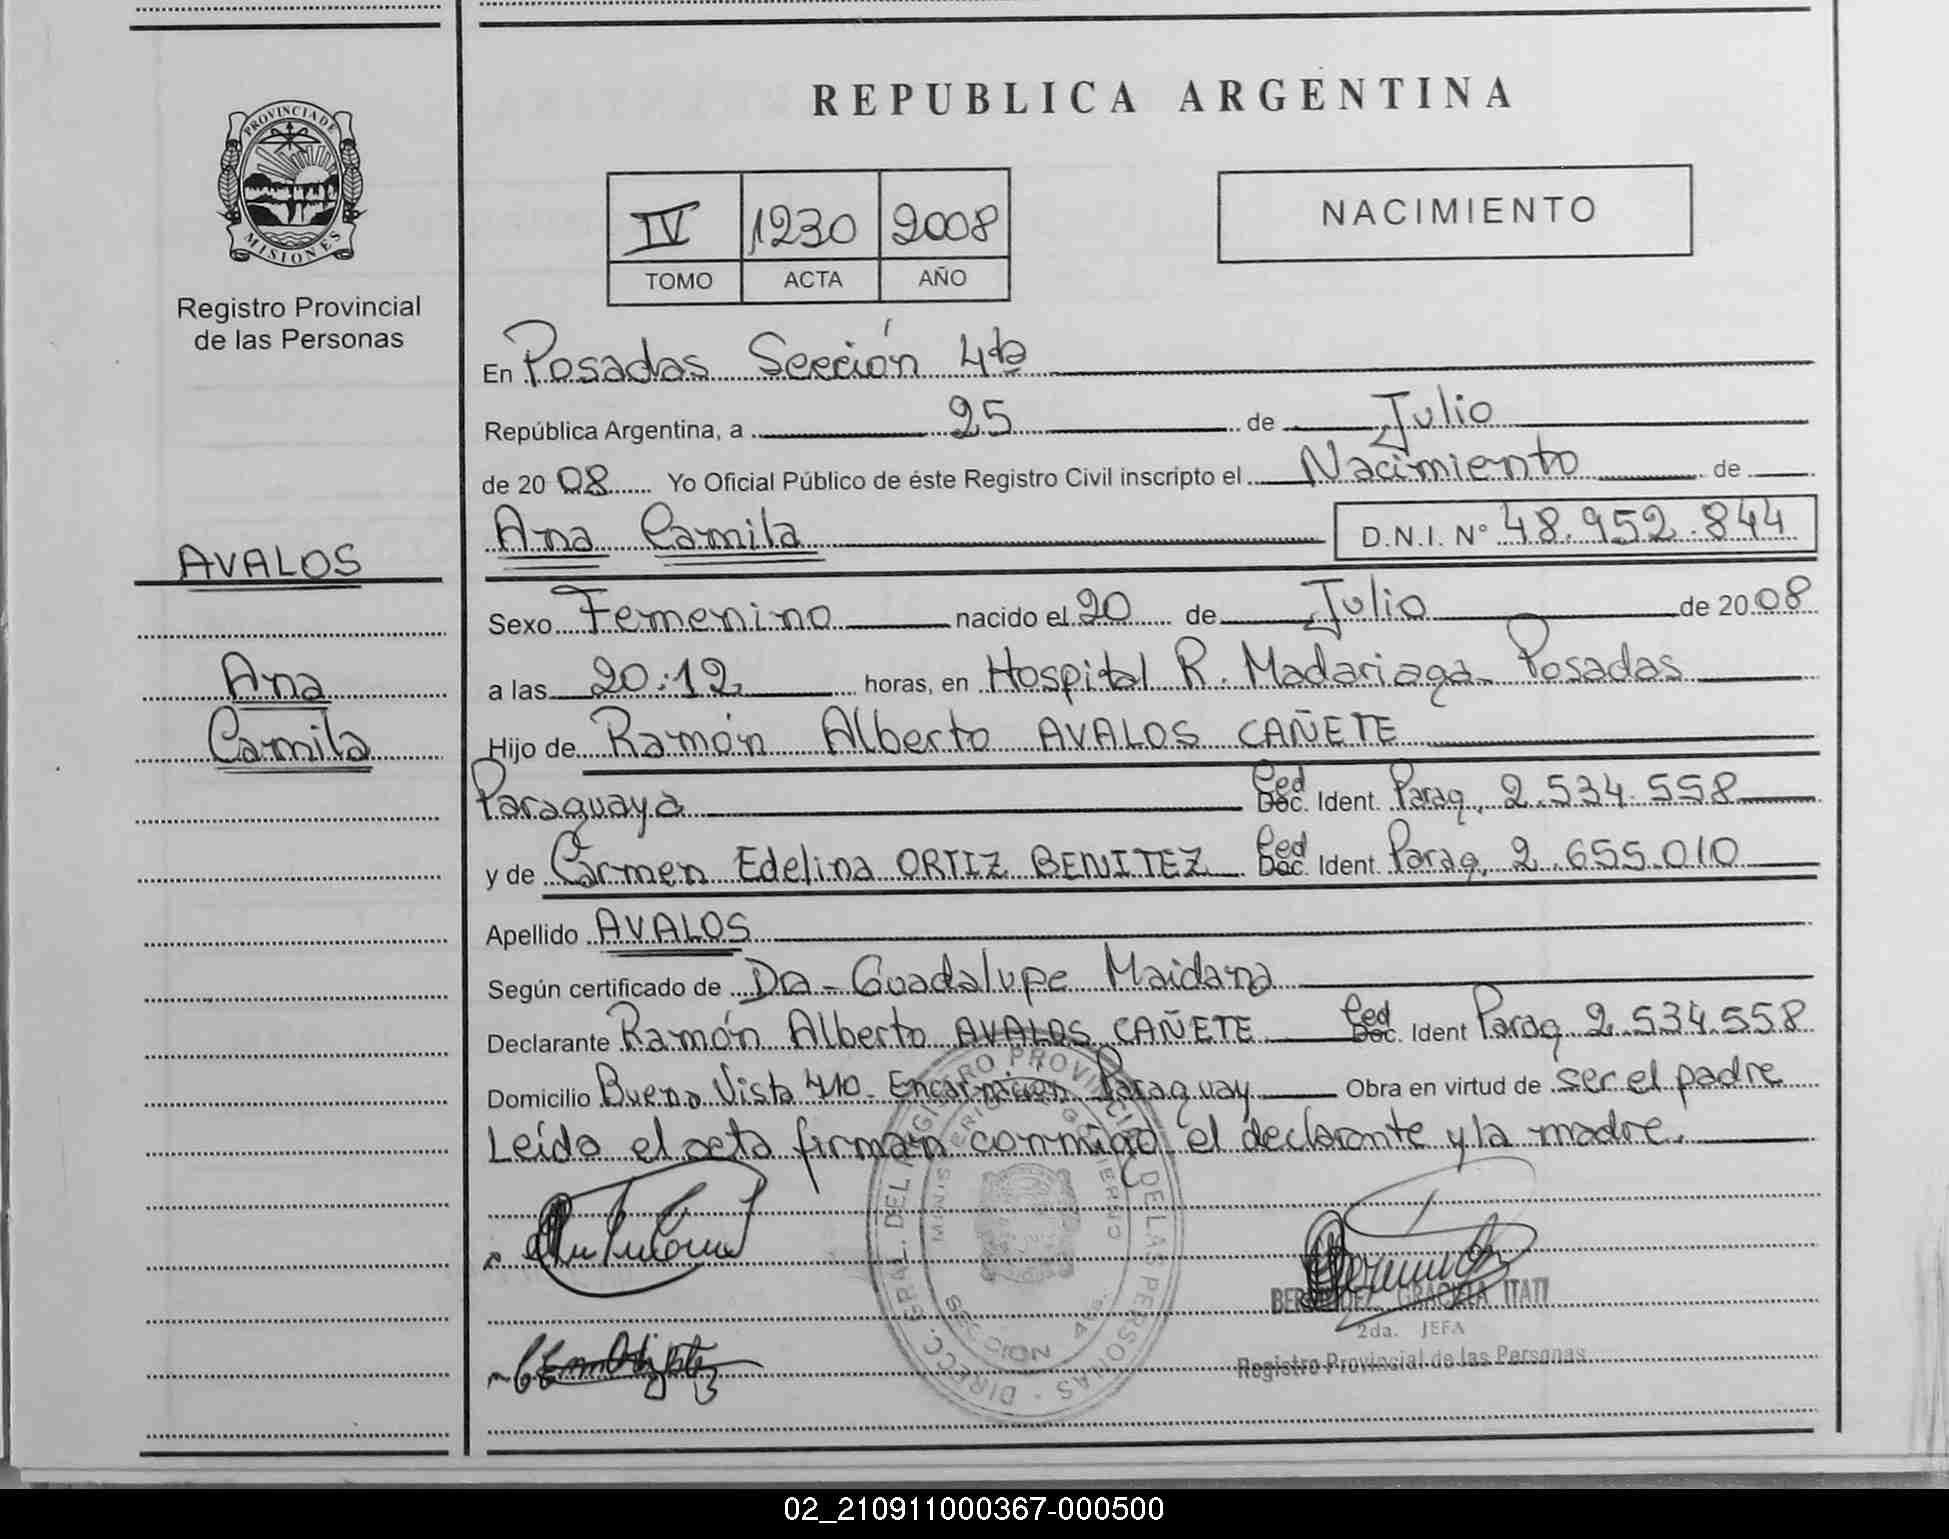 REPUBLICA ARGENTINA
PROVINCIA DE
MISIONES
Registro Provincial
de las Personas
IV 1230 2008
TOMO ACTA AÑO
NACIMIENTO
En Posadas Sección 4ta
República Argentina, a 25 de Julio
de 20 08 Yo Oficial Público de éste Registro Civil inscripto el Nacimiento de
Ana Camila D.N.I. N° 48.952.844
AVALOS
Sexo Femenino nacido el 20 de Julio de 20 08
Ana
a las 20:12 horas, en Hospital R. Madariaga - Posadas
Camila
Hijo de Ramón Alberto AVALOS CAÑETE
Paraguaya Ced Doc. Ident. Parag. 2.534.558
y de Carmen Edelina ORTIZ BENITEZ Ced Doc. Ident. Parag. 2.655.010
Apellido AVALOS
Según certificado de Dra - Guadalupe Maidana
Declarante Ramón Alberto AVALOS CAÑETE Ced Doc. Ident Parag 2.534.558
Domicilio Buena Vista 410 - Encarnación Paraguay Obra en virtud de ser el padre
Leída el acta firman conmigo el declarante y la madre.
DIRECC. GRAL. DEL REGISTRO PROVINCIAL DE LAS PERSONAS
MINISTERIO DE GOBIERNO
SECCION 4ta.
GRACIELA ITATI
2da. JEFA
Registro Provincial de las Personas
02_210911000367-000500